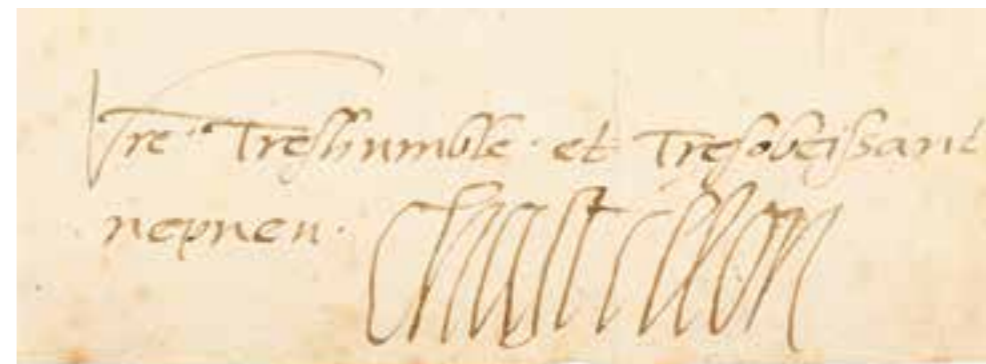 Vre Treshumble et Tresobeissant
nepueu. Chastillon